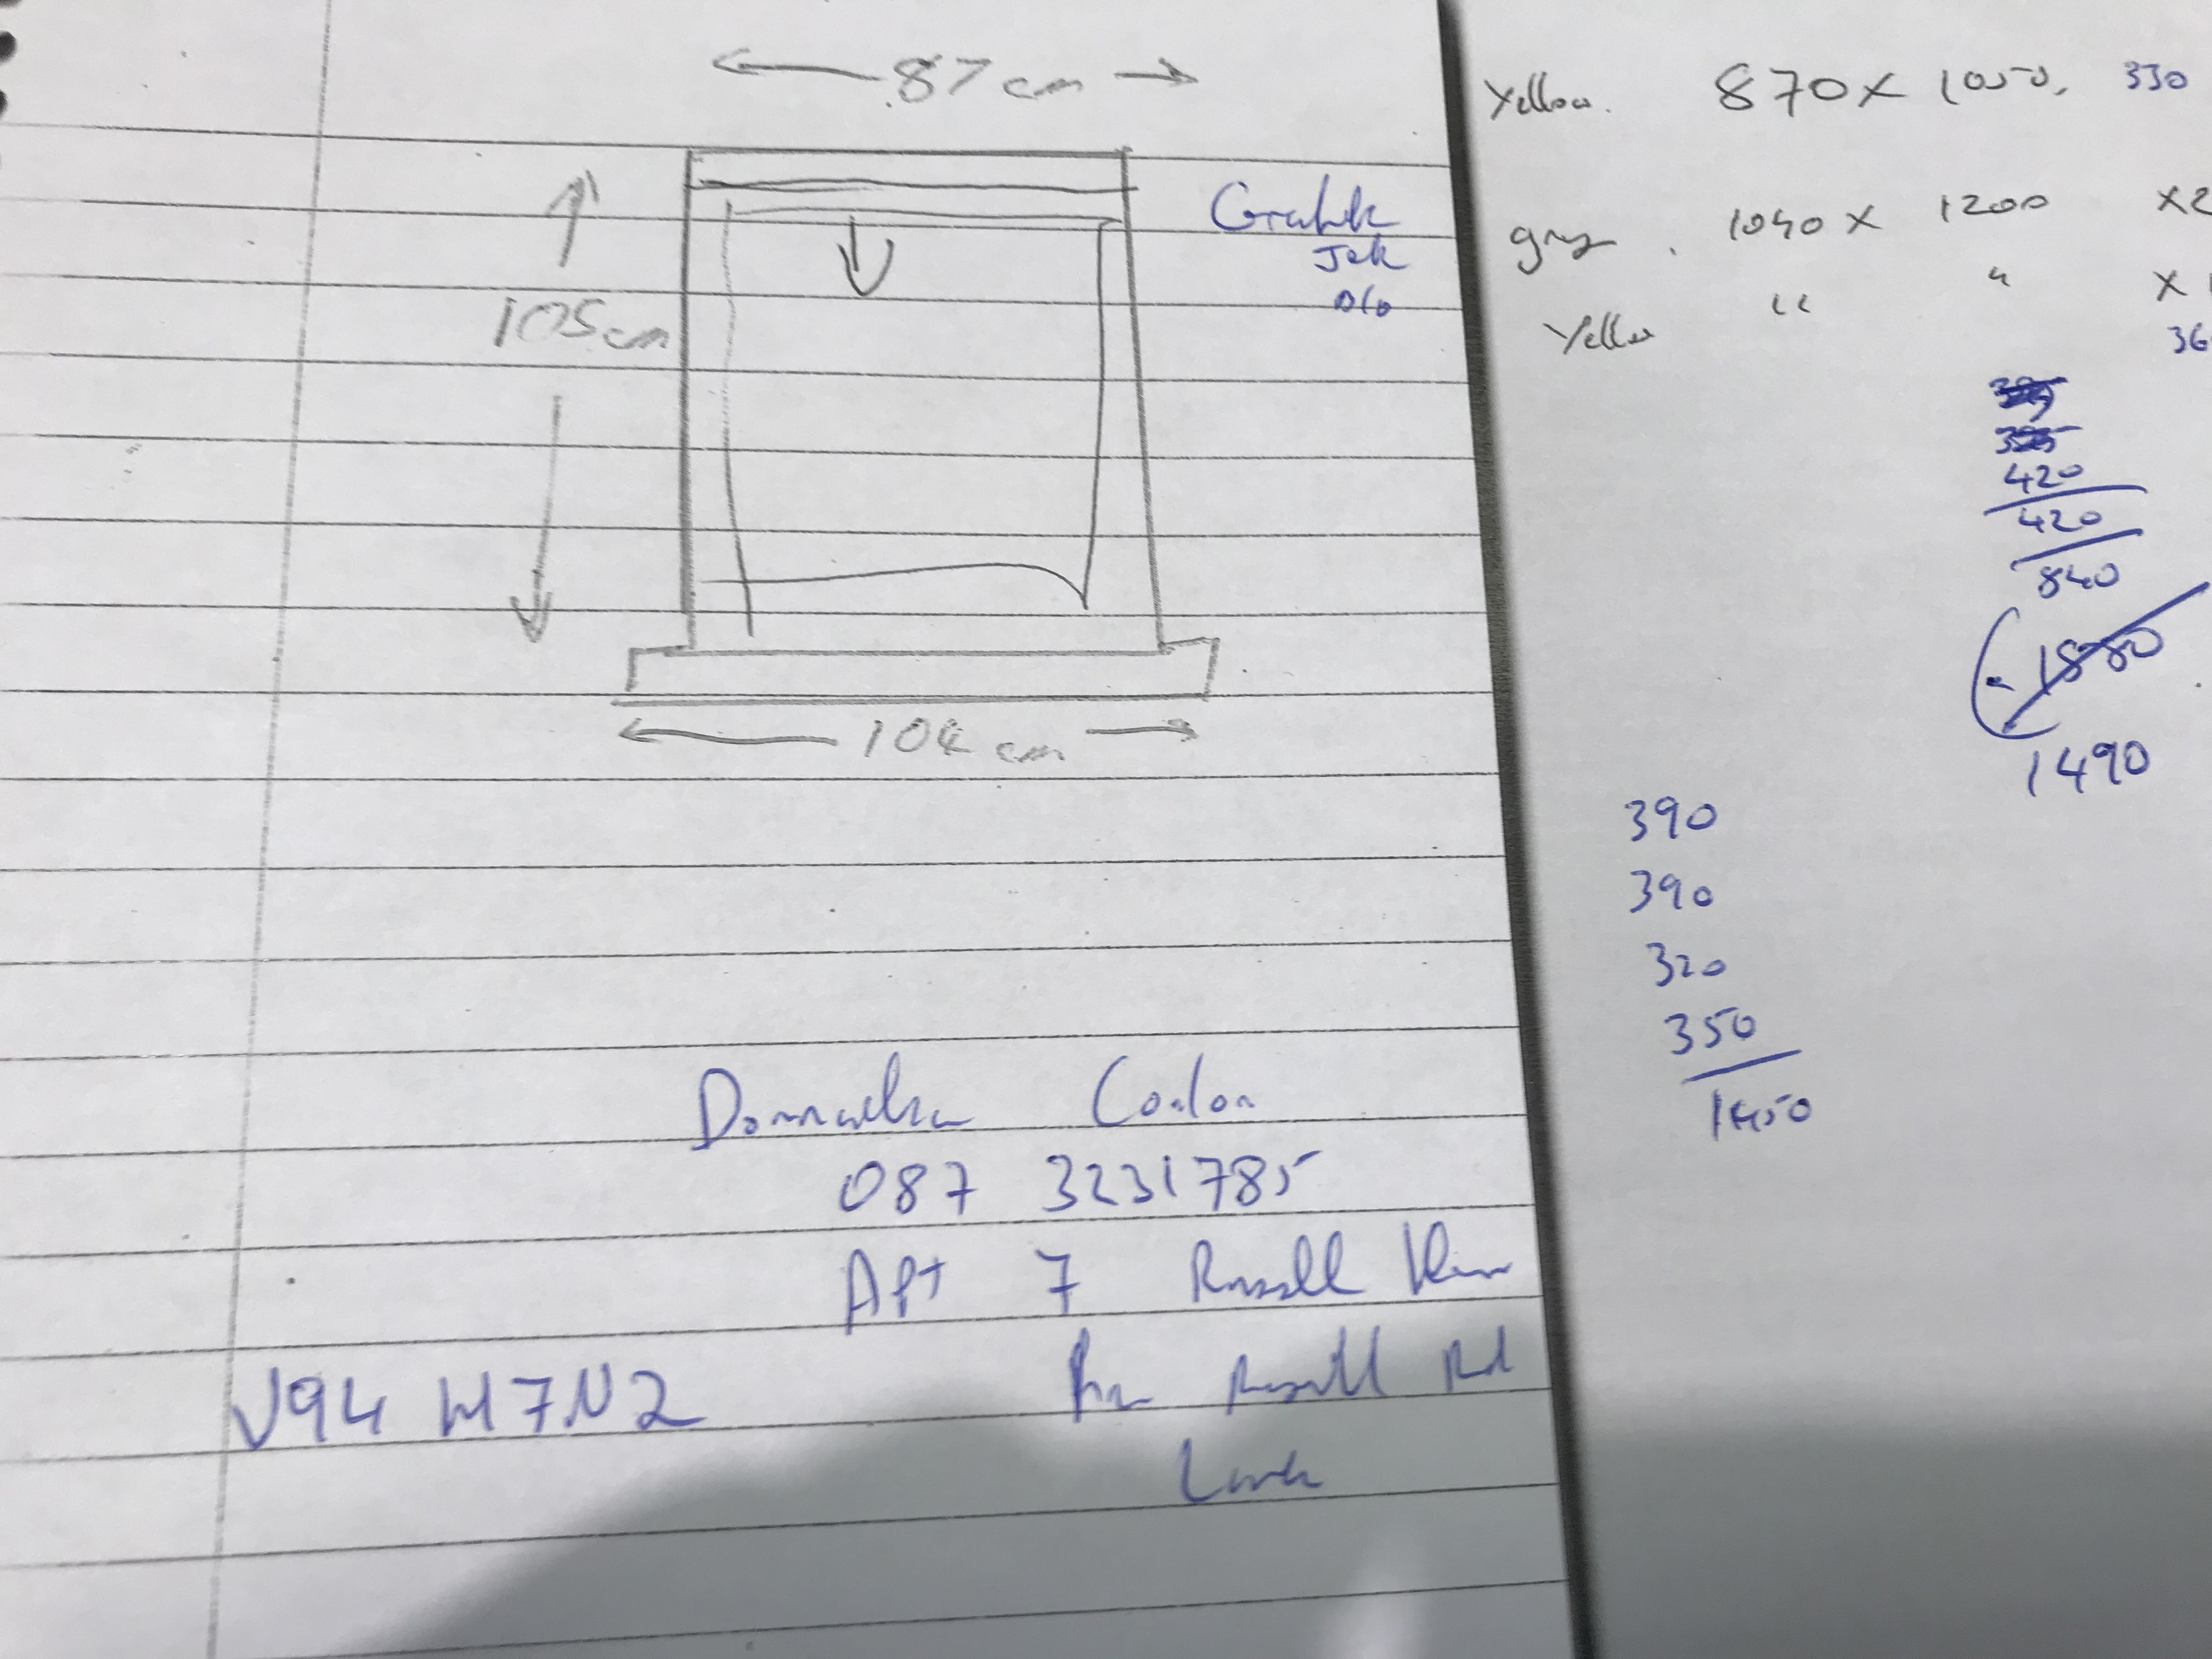 87 cm
105 cm
104 cm
Conlon
087 3231785
Apt 7 Russell
Russell Rd
V94 H7N2
Yellow. 870 x 1050, 330
grey . 1040 x 1200 x2
Yellow " " x 1
36
420
420
840
1880
1490
390
390
320
350
1450